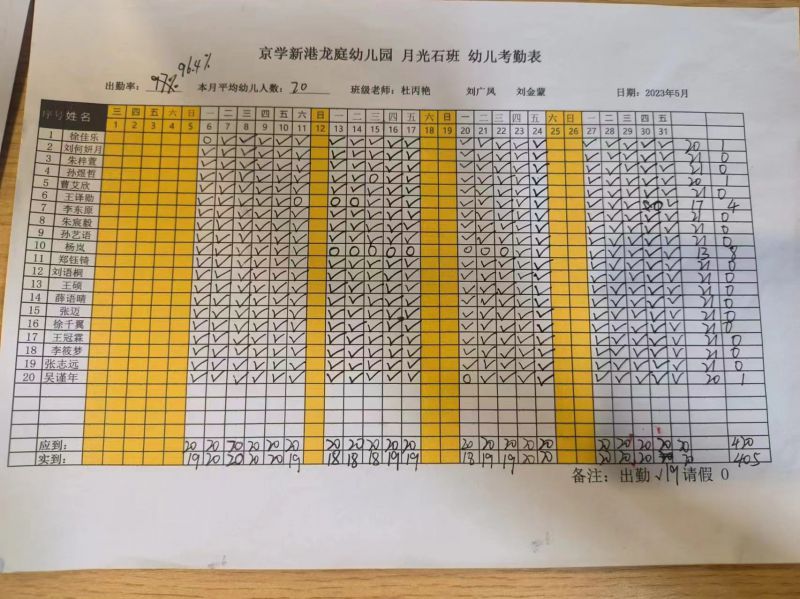 京学新港龙庭幼儿园 月光石班 幼儿考勤表
96.4%
出勤率： 97% 本月平均幼儿人数：20 班级老师：杜丙艳 刘广凤 刘金蒙 日期：2023年5月
序号 姓名 三 四 五 六 日 一 二 三 四 五 六 日 一 二 三 四 五 六 日 一 二 三 四 五 六 日 一 二 三 四 五
1 2 3 4 5 6 7 8 9 10 11 12 13 14 15 16 17 18 19 20 21 22 23 24 25 26 27 28 29 30 31
1 徐佳乐 20 1
2 刘何妍月 21 0
3 朱梓萱 21 0
4 孙煜哲 20 1
5 曹艾欣 21 0
6 王译勋 17 4
7 李东原 21 0
8 朱宸毅 21 0
9 孙艺语 21 0
10 杨岚 13 8
11 郑钰锜 21 0
12 刘语桐 21 0
13 王硕 21 0
14 薛语晴 21 0
15 张迈 21 0
16 徐千翼 21 0
17 王冠霖 21 0
18 李筱梦 21 0
19 张志远 21 0
20 吴谨年 20 1
应到： 20 20 20 20 20 20 20 20 20 20 20 20 20 20 20 20 20 20 20 20 20 420
实到： 19 20 20 20 20 19 18 18 18 19 19 18 19 19 20 20 20 20 20 20 405
备注：出勤 √ 19 请假 0